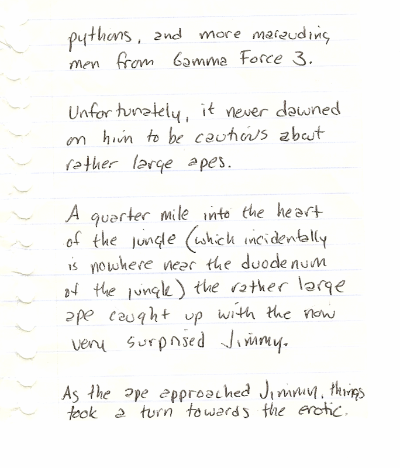 pythons, and more marauding
men from Gamma Force 3.
Unfortunately, it never dawned
on him to be cautious about
rather large apes.
A quarter mile into the heart
of the jungle (which incidentally
is nowhere near the duodenum
of the jungle) the rather large
ape caught up with the now
very surprised Jimmy.
As the ape approached Jimmy, things
took a turn towards the erotic.